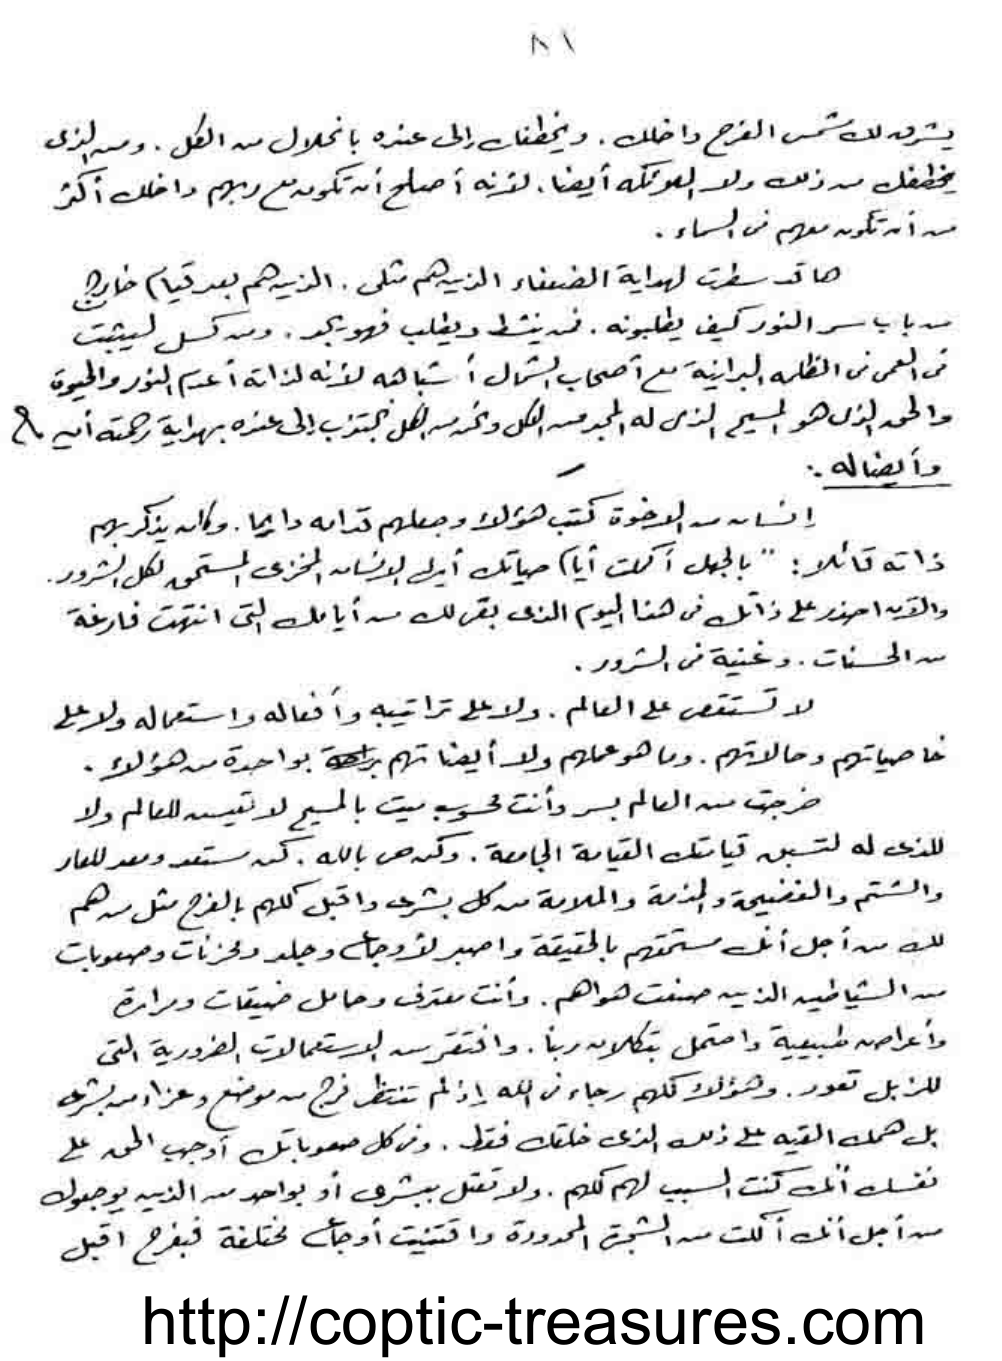 ٨١
يشرق لك شمس الفرح داخلك . ويخطفك إلى عنده بانحلال من الكل . ومن الذى
يخطفك من ذلك ولا الملائكة أيضا . لأنه أصلح أن تكون مع ربهم داخلك أكثر
من أن تكون معهم فى السماء .
ها قد سطرت لهداية الضعفاء الذين هم مثلى . الذين هم بعد قيام خارج
من باب سر النور كيف يطلبونه . فمن ينشط ويطلب فهو يجد . ومن كسل ليثبت
فى العمى فى الظلمة البرانية مع أصحاب الشمال أشباهه لأنه لذاته أعدم النور والحيوة
والحق الذى هو المسيح الذى له المجد من الكل ونحن من الكل نجتذب إلى عنده بهداية رحمته أمين
وأيضا له :
إنسان من الاخوة كتب هؤلاء وجعلهم قدامه دايما . وكان يذكر بهم
ذاته قائلا : " بالجهل أكملت أيام حياتك أيها الإنسان المخزى المستحق لكل الشرور .
والآن احذر على ذاتك فى هذا اليوم الذى بقى لك من أيامك التى انتهت فارغة
من الحسنات . وغنية فى الشرور .
لا تستقص على العالم . ولا على تراتيبه وأفعاله واستعماله ولا على
خاصياتهم وحالاتهم . وما هو عملهم ولا أيضا تهم بواحدة من هؤلاء .
خرجت من العالم بسر وأنت محسوب ميت بالمسيح لا تعيش للعالم ولا
للذى له لتسبق قيامتك القيامة الجامعة . وكن حى بالله . كن مستعد ومعد للعار
والشتم والفضيحة والمذمة والملامة من كل بشرى واقبل كلهم بالفرح مثل من هم
لك من أجل أنك مستحقهم بالحقيقة واصبر لأوجاع وجلد ومحزنات وصعوبات
من الشياطين الذين صنعت هواهم . وأنت معترف وحامل ضيقات ومرارة
وأعراض طبيعية واحتمل بتكلان ربنا . وافتقر من الاستعمالات الضرورية التى
للزبل تعود . وهؤلاء كلهم رجاء فى الله إذ لم تنتظر فرج من موضع وعزاء من بشرى
بل همك القيه على ذلك الذى خلقك فقط . وفى كل صعوباتك أوجب الحق على
نفسك أنك كنت السبب لهم كلهم . ولا تعتل ببشرى أو بواحد من الذين يوجعوك
من أجل أنك أكلت من الشجرة المحدودة واقتنيت أوجاع مختلفة فبفرح اقبل
http://coptic-treasures.com